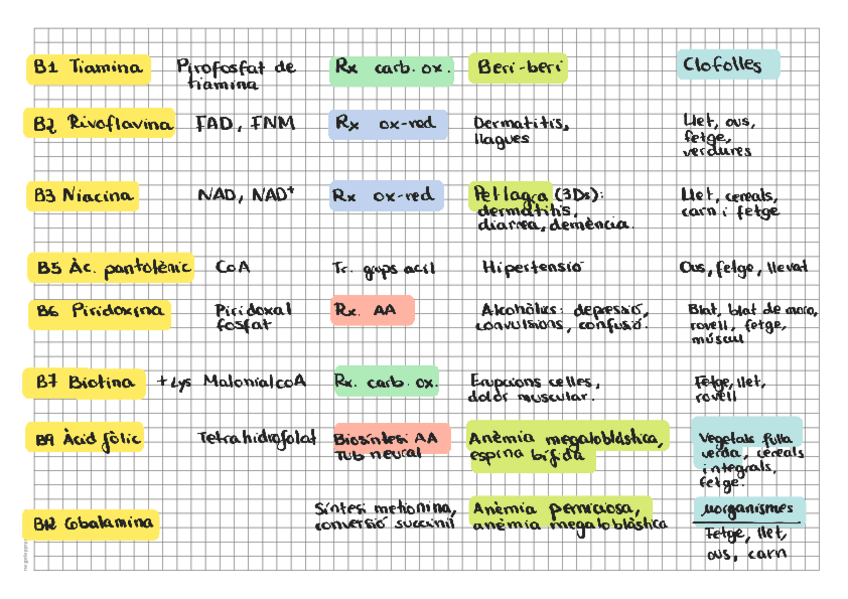 B1 Tiamina Pirofosfat de Rx carb. ox. Beri-beri Clofolles
tiamina
B2 Rivoflavina FAD, FNM Rx ox-red Dermatitis, Llet, ous,
llagues fetge,
verdures
B3 Niacina NAD, NAD+ Rx ox-red Pel·lagra (3Ds): Llet, cereals,
dermatitis, carn i fetge
diarrea, demència.
B5 Àc. pantotènic CoA Tr. grups acil Hipertensió Ous, fetge, llevat
B6 Piridoxina Piridoxal Rx. AA Alcohòlics: depressió, Blat, blat de moro,
fosfat convulsions, confusió. rovell, fetge,
múscul
B7 Biotina +Lys MalonialcoA Rx. carb. ox. Erupcions celles, Fetge, llet,
dolor muscular. rovell
B9 Àcid fòlic Tetrahidrofolat Biosíntesi AA Anèmia megaloblàstica, Vegetals fulla
Tub neural espina bífida verda, cereals
integrals,
fetge.
B12 Cobalamina Síntesi metionina, Anèmia perniciosa, μorganismes
conversió succinil anèmia megaloblàstica Fetge, llet,
ous, carn